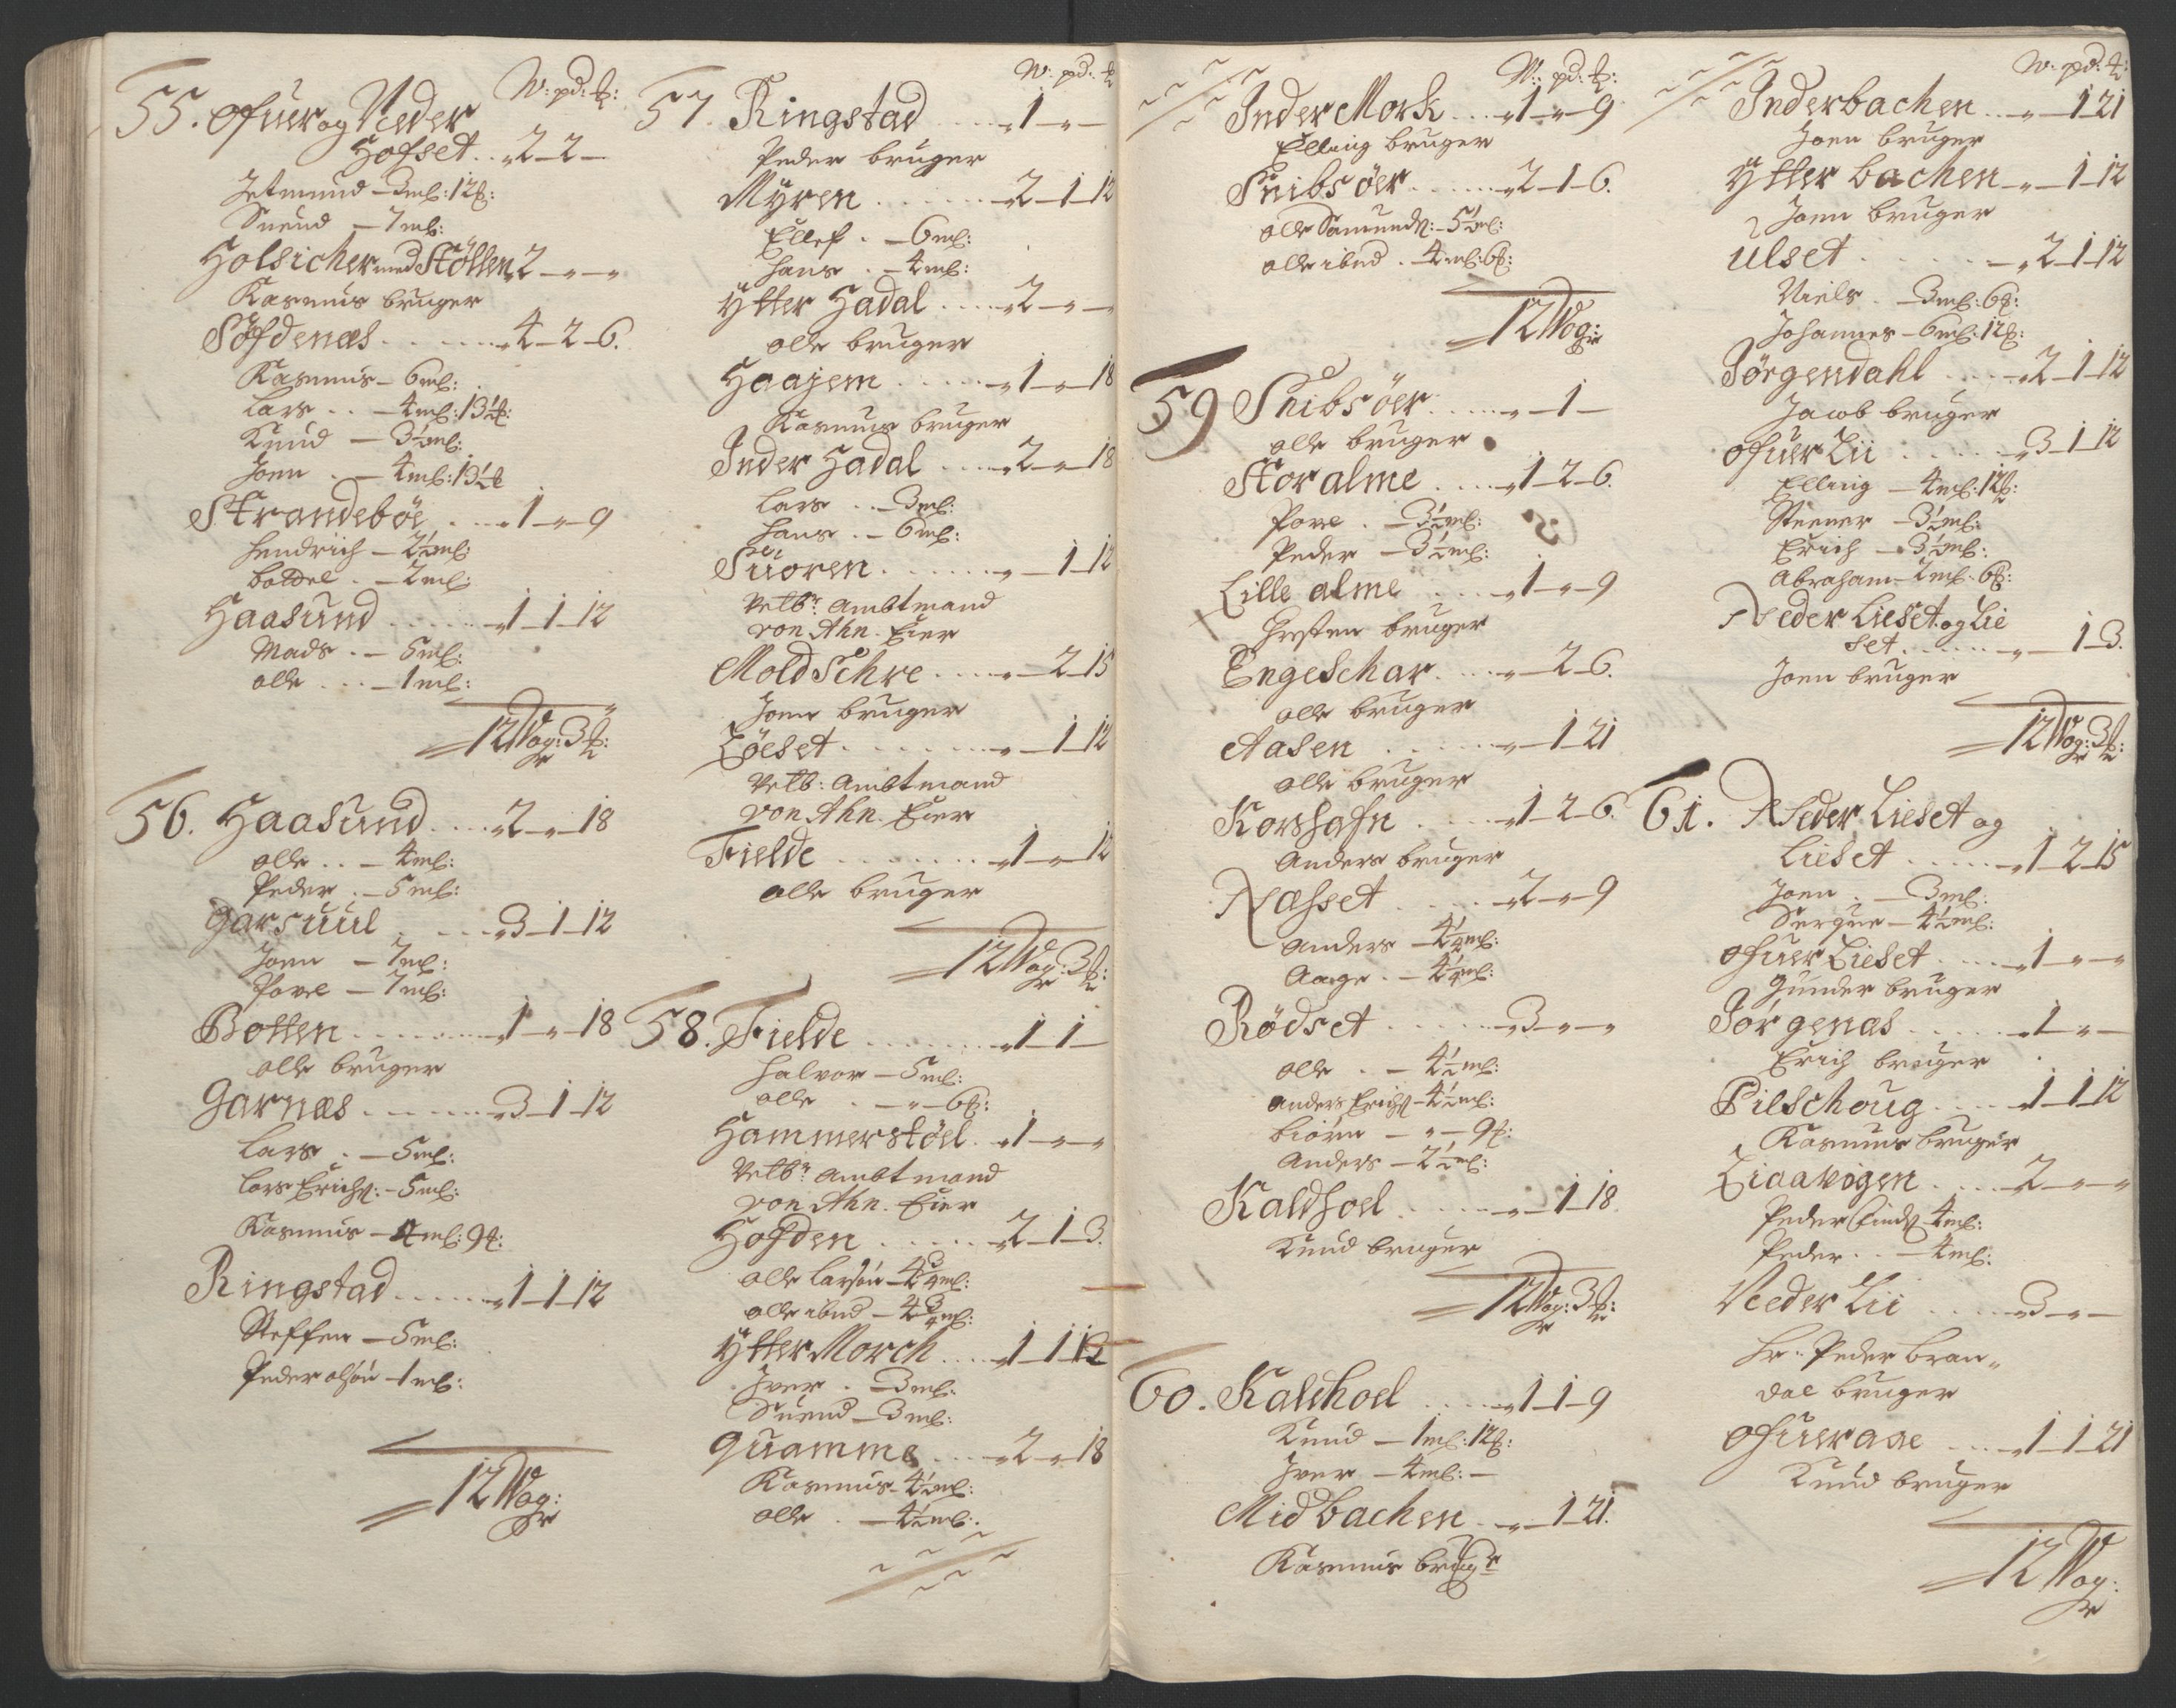 W: pd: ℔:
55. Ofuer og Neder
Hofset .. „2–2–
Jetmund – 3ml: 12℔:
Suend – 7ml:
Holsicher med Stöllen 2–„–„
Rasmus bruger
Söfdenæs ...... „4–2–6.
Rasmus – 6ml:
Lars .. – 4ml: 13½℔:
Knud – 3½ml:
Joen . – 4ml: 13½℔
Strandeböe .... 1–„–9
Hendrich – 2½ml:
Boldel . – 2ml:
Haasund ..... „1–1–12
Mads . – 5ml:
Olle ... – 1ml:
12 Wog: 3℔:
56. Haasund .... „2–„–18
Olle .. – 4ml:
Peder . – 5ml:
Garsuul .... „3–1–12
Joen – 7ml:
Povel – 7ml:
Botten ........ „1–„–18
Olle bruger
Garnæs ....... „3–1–12
Lars . – 5ml:
Lars Erichs: – 5ml:
Rasmus – 4ml: 9℔:
Ringstad ...... „1–1–12
Steffen – 5ml:
Peder olsön – 1ml:
12 Wog:
W: pd: ℔
57. Ringstad .... „1–„–
Peder bruger
Myren ....... „2–1–12
Ellef . – 6ml:
Hans . – 4ml:
Ytter Hadal .... „2–„–
Olle bruger
Haajem ..... „1–„–18
Rasmus bruger
Inder Hadal .... „2–„–18
Lars .. – 3ml:
Hans . – 6ml:
Süoren ....... „–1–12
Velb: Ambtmand
von Ahn. Eier
Moldschre .... „–2–15
Joen bruger
Löeset ....... „–1–12
Velb: Ambtmand
von Ahn. Eier
Fielde ........ „1–„–12
Olle bruger
12 Wog: 3℔:
58. Fielde ........ „1–1–
Halvor – 5ml:
Olle . – „– 6℔:
Hammerstöel . „1–„–„
Velb: Ambtmand
von Ahn. Eier
Hofden ..... „2–1–3.
Olle Larsön – 4¾ml:
Olle ibnd – 4¾ml:
Ytter Morch .... „1–1–12
Iver . – 3ml:
Suend – 3ml:
Quamme .... „2–„–18
Rasmus – 4½ml:
Olle . – 4½ml:
W: pd: ℔:
Inder Mork ... „1–„–9
Elling bruger
Snibsöer ...... „2–1–6.
Olle Samunds: – 5½ml:
Olle ibnd . 4ml: 6℔:
12 Wog:
59 Snibsöer ..... „–1–
Olle bruger
Stor alme .... „1–2–6.
Povel . – 3½ml:
Peder – 3½ml:
Lille alme .... „1–„–9
Gresten bruger
Engeschar .... „–2–6.
Olle bruger
Aasen ...... „–1–21
Olle bruger
Korshafn .... „1–2–6.
Anders bruger
Næsset ..... „2–„–9
Anders – 4¼ml:
Aage . – 4¼ml:
Rödset ...... „3–„–„
Olle . – 4½ml:
Anders Erichs – 4½ml:
Biörn – „– 9℔:
Anders – 2½ml:
Kaldhoel ..... „–1–18.
Knud bruger
12 Wog: 3℔:
60. Kaldhoel ..... „1–1–9
Knud – 1ml: 12℔:
Iver – 4ml: –
Midbachen .. „–1–21.
Rasmus brugr
W: pd: ℔:
Inderbachen .. „–1–21
Joen bruger
Ytter bachen „–1–12
Joen bruger
Ulset ...... „2–1–12
Niels . – 3ml: 6℔:
Johannes – 6ml: 12℔:
Jörgendahl .... „2–1–12
Jacob bruger
Ofuer Lii ...... „3–1–12
Elling – 4ml: 12℔:
Steener – 3½ml:
Erich – 3½ml:
Abraham – 2ml: 6℔:
Neder Lieset og Lie
set ...... „–1–3.
Joen bruger
12 Wog: 3℔:
61. Neder Lieset og
Lieset ..... „1–2–15
Joen . – 3ml:
Sergue – 4½ml:
Ofuer Lieset .... „1–„–„
Gunder bruger
Jörgenæs ..... „1–„–
Erich bruger
Pilschoug .... „1–1–12
Rasmus bruger
Liaavögen .... „2–„–„
Peder Finds 4ml:
Peder .. – 4ml:
Neder Lii .... „3–„–
Hr: Peder Bran„
dal bruger
Ofueraae .... „1–1–21
Knud bruger
12 Wog: